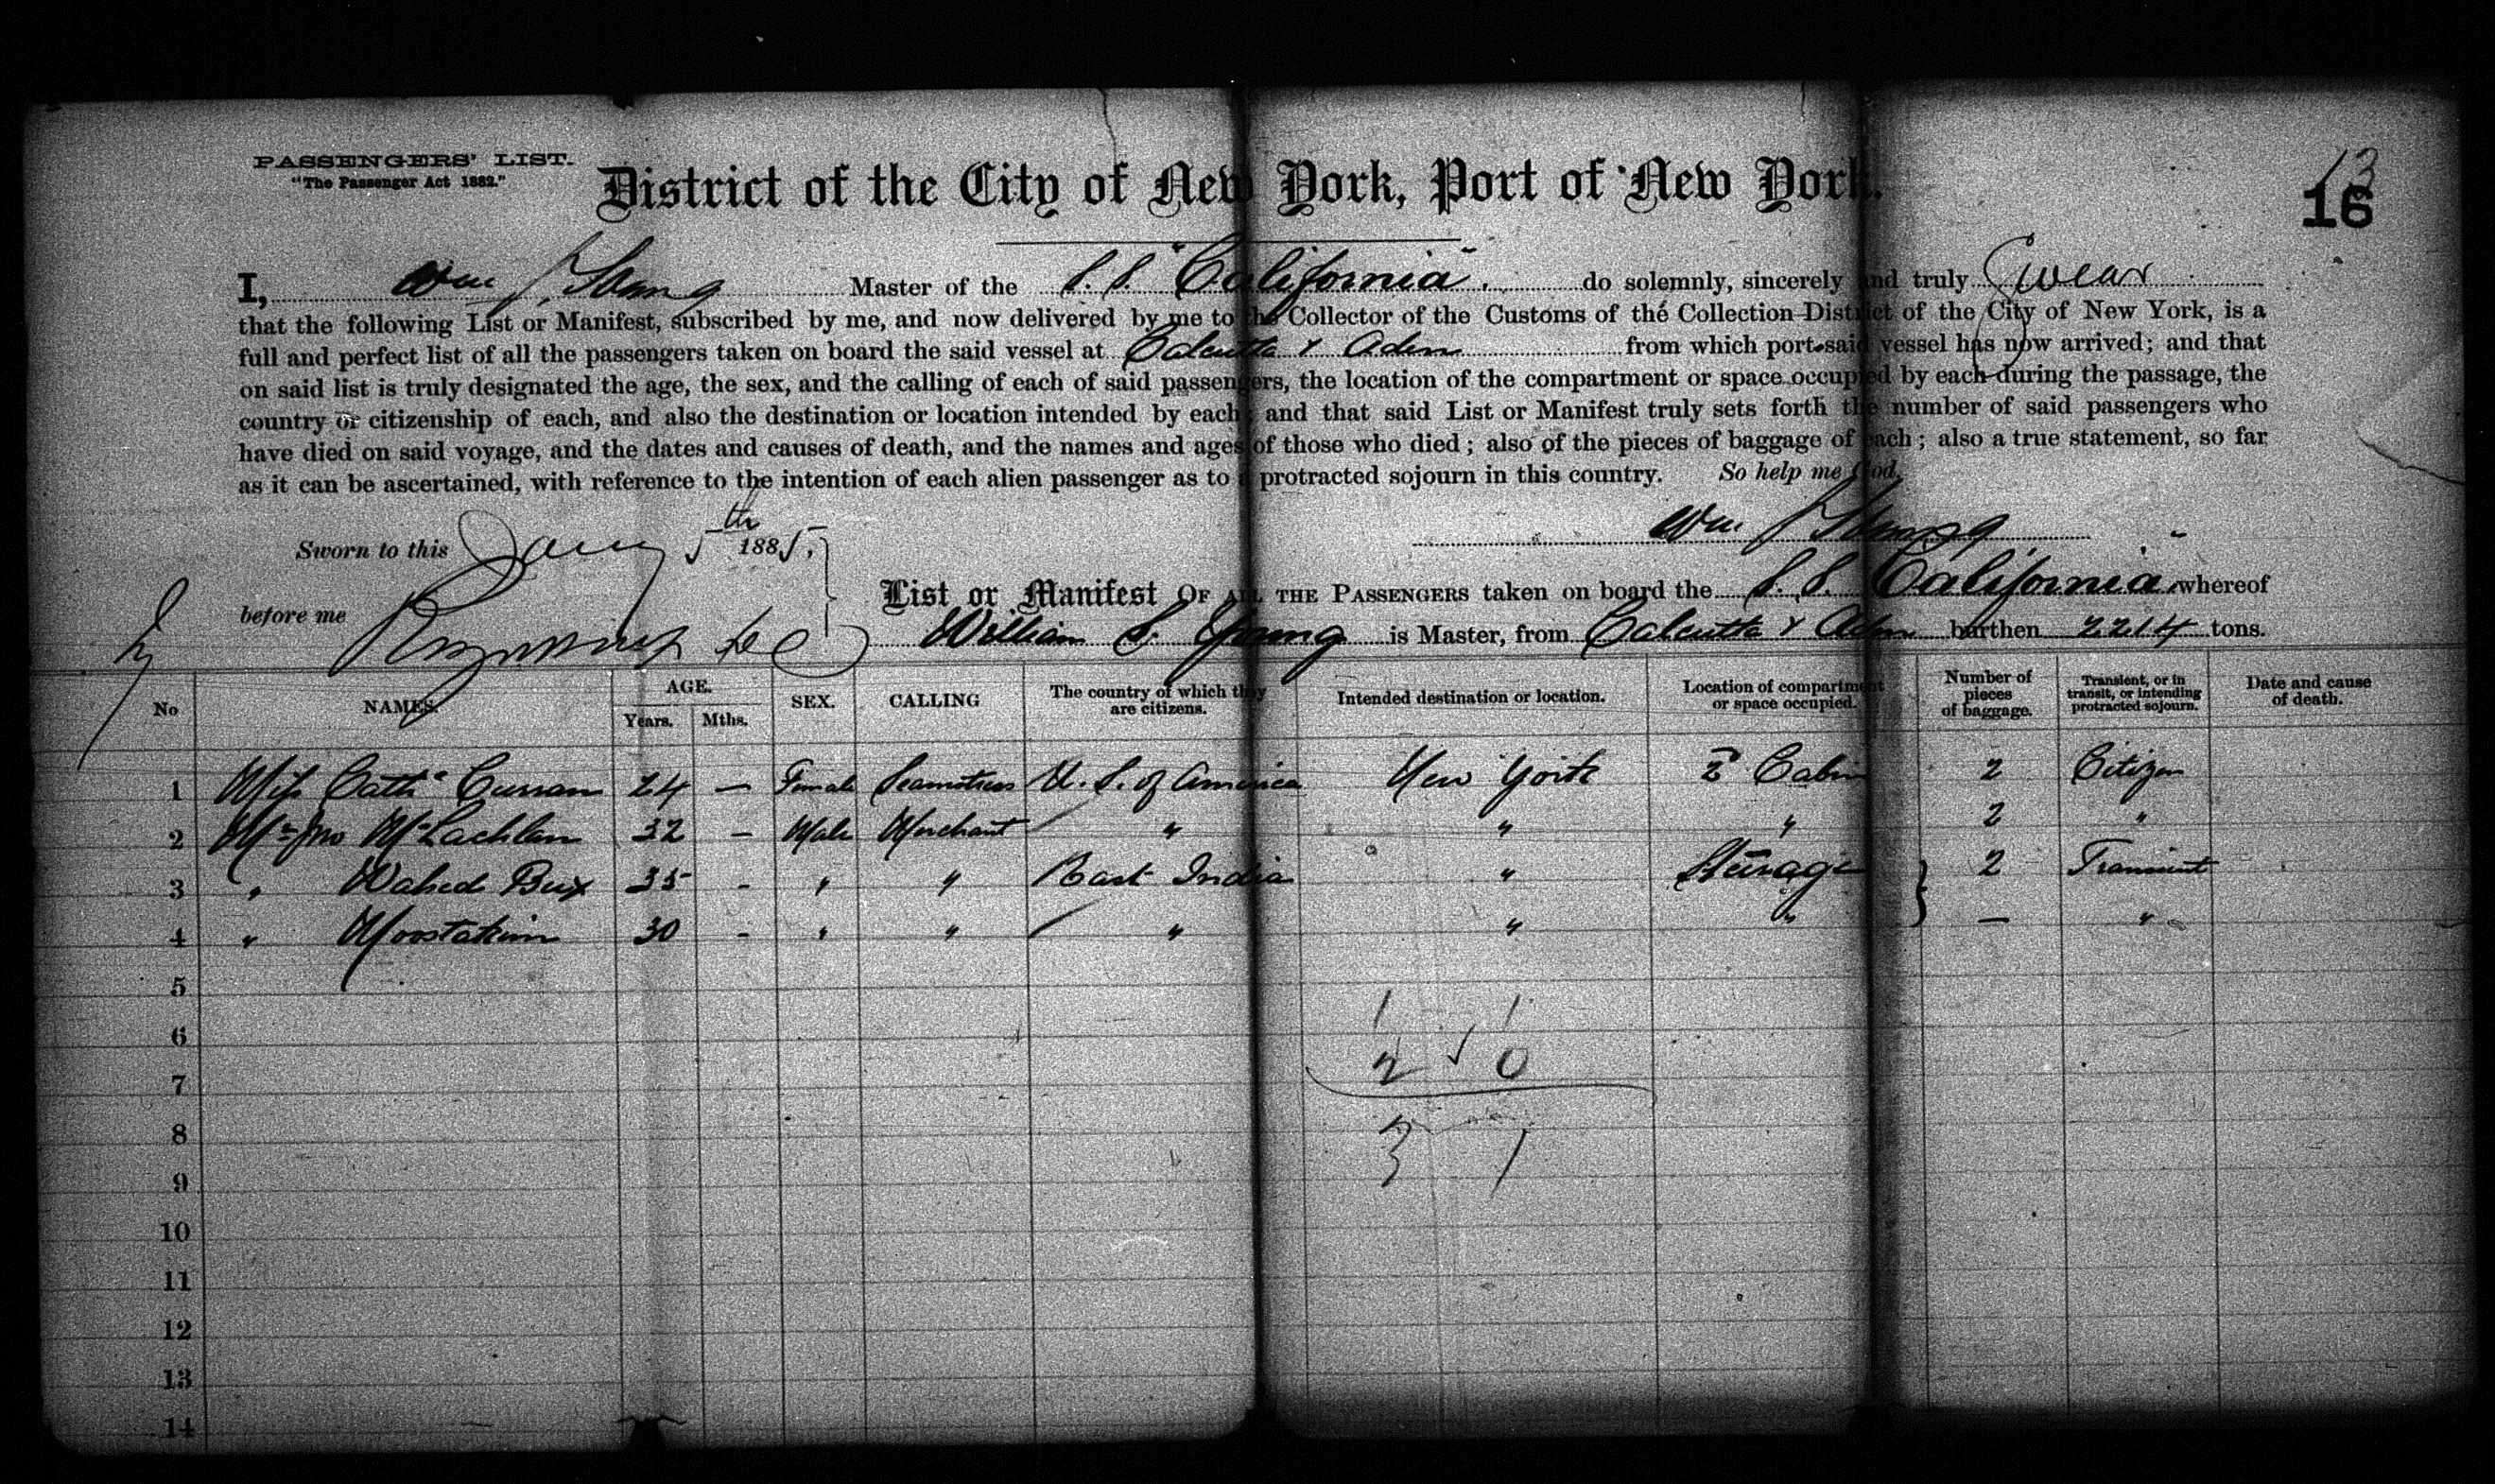 PASSENGERS' LIST.
"The Passenger Act 1882."
District of the City of New York, Port of New York.
13
16
I, Wm S. Young Master of the S.S. "California". do solemnly, sincerely and truly Swear
that the following List or Manifest, subscribed by me, and now delivered by me to the Collector of the Customs of the Collection District of the City of New York, is a
full and perfect list of all the passengers taken on board the said vessel at Calcutta & Aden from which port said vessel has now arrived; and that
on said list is truly designated the age, the sex, and the calling of each of said passengers, the location of the compartment or space occupied by each during the passage, the
country or citizenship of each, and also the destination or location intended by each; and that said List or Manifest truly sets forth the number of said passengers who
have died on said voyage, and the dates and causes of death, and the names and ages of those who died; also of the pieces of baggage of each; also a true statement, so far
as it can be ascertained, with reference to the intention of each alien passenger as to a protracted sojourn in this country. So help me God.
Wm S. Young
Sworn to this Jany 5th 1885,
before me
List or Manifest OF ALL THE PASSENGERS taken on board the S.S. California whereof
William S. Young is Master, from Calcutta & Aden burthen 2214 tons.
No NAMES. AGE. Years. Mths. SEX. CALLING The country of which they are citizens. Intended destination or location. Location of compartment or space occupied. Number of pieces of baggage. Transient, or in transit, or intending protracted sojourn. Date and cause of death.
1 Miss Cathe Curran 24 — Female Seamstress U.S. of America New York 2 Cabin 2 Citizen
2 Mr Jno McLachlan 32 - Male Merchant " " " 2 "
3 " Wahed Bux 35 - " " East India " Steerage 2 Transient
4 " Moostakim 30 - " " " " " — "
5
6
7
8
9
10
11
12
13
14
1 1
2 ✓ 0
3 1